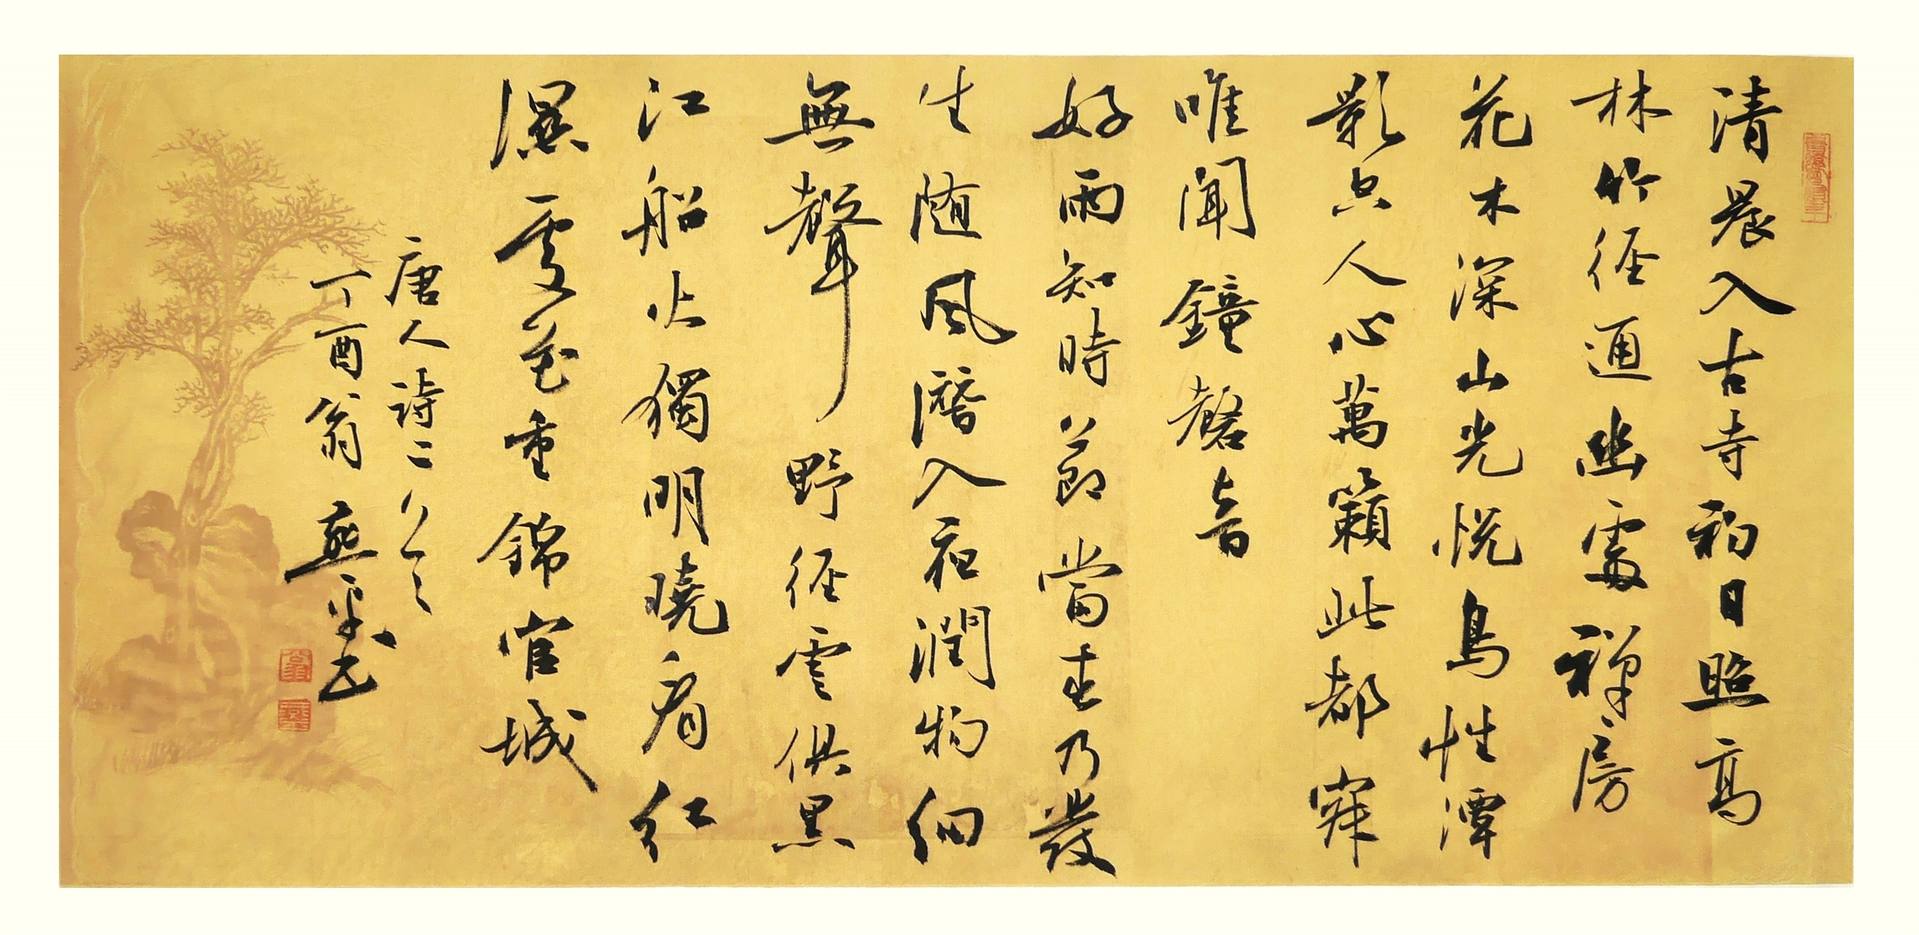 清晨入古寺初日照高
林竹径通幽處禅房
花木深山光悦鳥性潭
影空人心萬籟此都寂
唯聞鐘磬音
好雨知時節當春乃發
生随風潛入夜潤物細
無聲野径雲俱黑
江船火獨明曉看紅
濕處花重錦官城
唐人詩二
丁酉翁